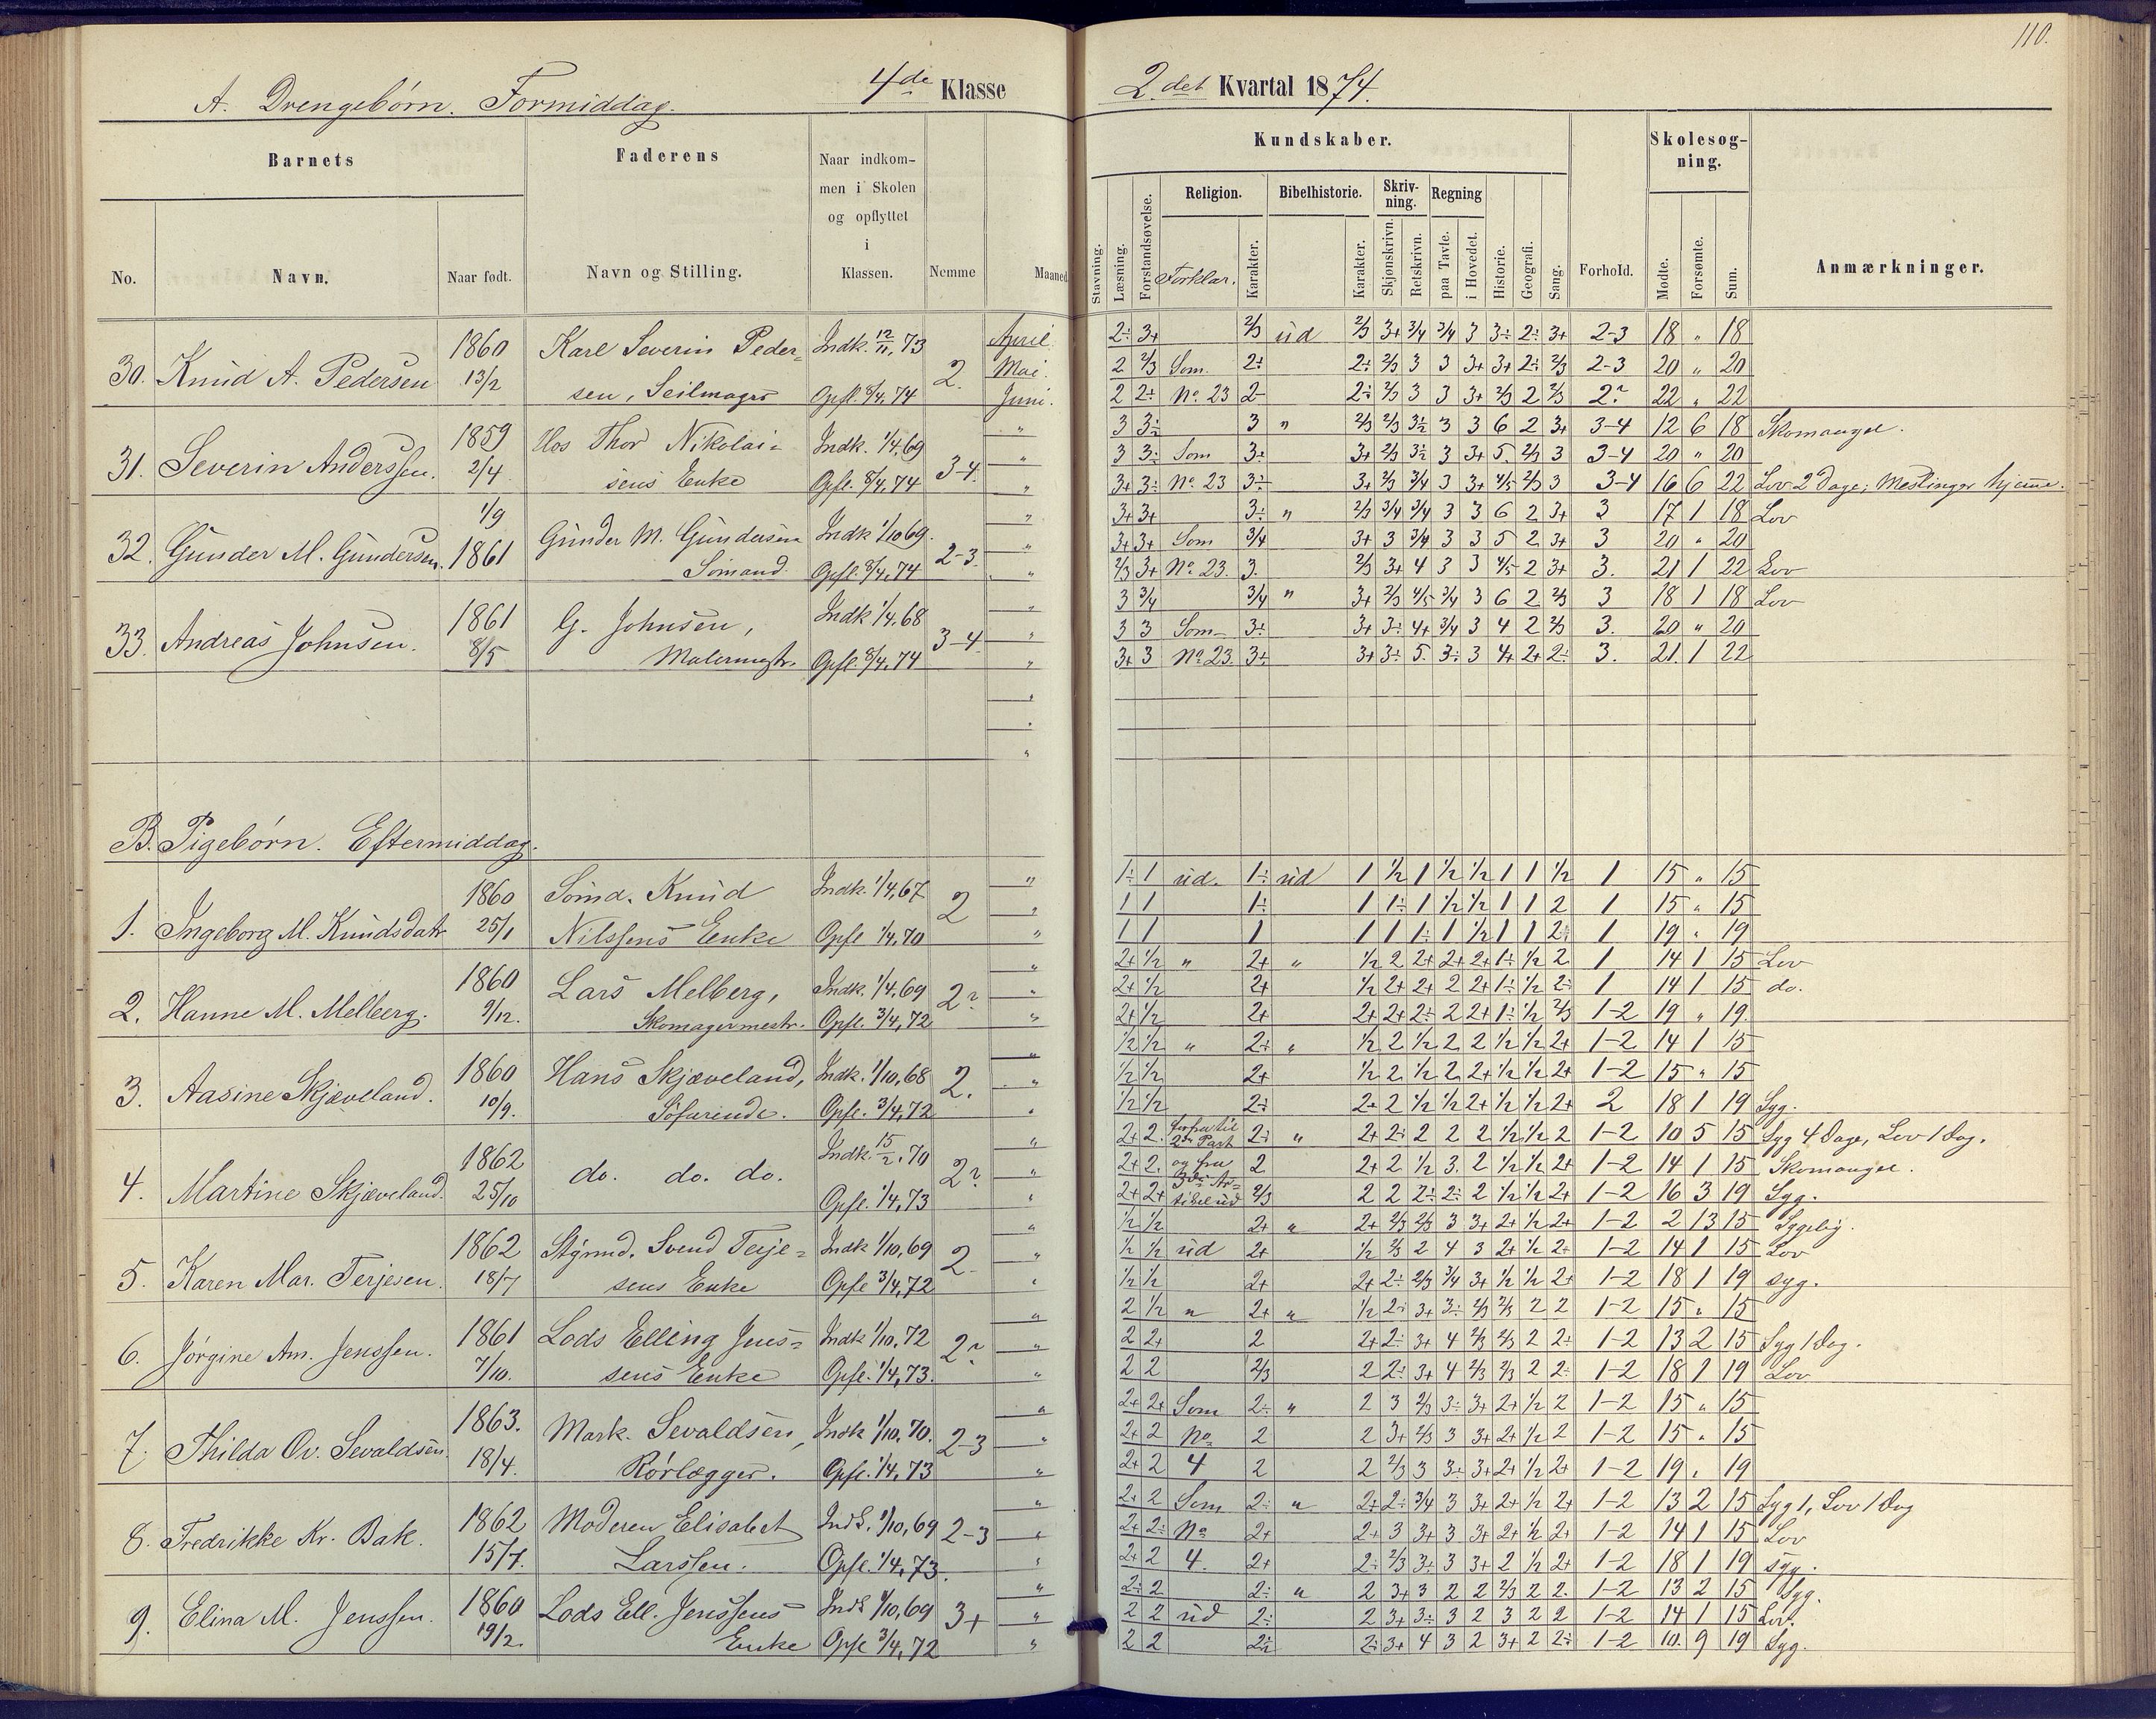 110.
A. Drengebørn. Formiddag.
4de Klasse
2det Kvartal 1874.
Barnets
Faderens
Naar indkommen i Skolen og opflyttet i Klassen.
Kundskaber.
Skolesøgning.
No. Navn. Naar født. Navn og Stilling. Nemme Maaned
Stavning. Læsning. Forstandsøvelse. Religion. Forklar. Karakter. Bibelhistorie. Karakter. Skrivning. Skjønskrivn. Retskrivn. Regning paa Tavle. i Hovedet. Historie. Geografi. Sang. Forhold. Mødte. Forsømte. Sum. Anmærkninger.
30. Knud A. Pedersen 1860 13/2 Karl Severin Pedersen, Seilmager Indk. 12/11, 73 Opfl. 8/4, 74 2.
April 2÷ 3+ 2/3 ud 2/3 3+ 3/4 3/4 3 3÷ 2÷ 3+ 2-3 18 „ 18
Mai. 2 2/3 Som 2÷ 2÷ 2/3 3 3 3+ 3+ 2÷ 2/3 2-3 20 „ 20
Juni. 2 2÷ No. 23 2- 2÷ 2/3 3 3 3+ 2/3 2 2/3 2? 22 „ 22
31. Severin Anderssen. 1859 2/4 Hos Thor Nikolaisens Enke Indk. 1/4, 69 Opfl. 8/4, 74 3-4.
„ 3 3÷ 3 „ 2/3 2/3 3½ 3 3 6 2 3+ 3-4 12 6 18 Skomangel.
„ 3 3÷ Som 3÷ 3+ 2/3 3½ 3 3+ 5. 2/3 3 3-4 20 „ 20
„ 3+ 3÷ No. 23 3÷ 3+ 2/3 3/4 3 3+ 4/5 2/3 3 3-4 16 6 22 Lov 2 Dage; Meslinger hjeme.
32. Gunder M. Gundersen. 1/9 1861 Gunder M. Gundersen Sømand. Indk 1/10 69. Opfl. 8/4, 74 2-3.
„ 3+ 3+ 3÷ „ 2/3 3/4 3/4 3 3 6 2 3+ 3 17 1 18 Lov
„ 3+ 3+ Som 3/4 3+ 3 3/4 3 3 5 2 3+ 3 20 „ 20
„ 2/3 3+ No. 23. 3. 2/3 3+ 4 3 3 4/5 2 3+ 3. 21 1 22 Lov
33. Andreas Johnsen. 1861 8/5 G. Johnsen, Malermestr. Indk 1/4, 68 Opfl. 8/4, 74 3-4.
„ 3 3/4 3/4 „ 3+ 2/3 4/5 3/4 3 6 2 2/3 3 18 1 18 Lov
„ 3 3 Som 3÷ 3+ 3÷ 4+ 3/4 3 4 2 2/3 3. 20 „ 20
„ 3+ 3 No. 23. 3÷ 3+ 3÷ 5. 3÷ 3 4+ 2+ 2÷ 3. 21. 1 22
B. Pigebørn. Eftermiddag.
1. Ingeborg M. Knudsdatr 1860 25/1 Sømd. Knud Nilssens Enke Indk. 1/4, 67 Opfl 1/4, 70 2
„ 1÷ 1 ud. 1÷ ud 1 1/2 1 1/2 1/2 1 1 1/2 1 15 „ 15
„ 1 1 1÷ 1 1÷ 1 1/2 1/2 1 1 2 1 15 „ 15
„ 1 1 1 1 1 1÷ 1 1/2 1 1 2÷ 1 19 „ 19
2. Hanne M. Melberg. 1860 9/12. Lars Melberg, Skomagermestr. Indk. 1/4, 69 Opfl. 3/4, 72 2?
„ 2+ 1/2 „ 2+ „ 1/2 2 2+ 2+ 2+ 1÷ 1/2 2 1 14 1 15 Lov
„ 2+ 1/2 2+ 1/2 2+ 2+ 2 2+ 1÷ 1/2 2÷ 1 14 1 15 do.
„ 2+ 1/2 2+ 2+ 2+ 2÷ 2 2+ 1÷ 1/2 2/3 1-2 19 „ 19.
3. Aasine Skjæveland. 1860 10/9. Hans Skjæveland, Søfarende. Indk. 1/10, 68 Opfl. 3/4, 72 2.
„ 1/2 1/2 „ 2+ „ 1/2 2 1/2 2 2 1/2 1/2 2+ 1-2 14 1 15
„ 1/2 1/2 2+ 1/2 2 1/2 2 2+ 1/2 1/2 2+ 1-2 15 „ 15
„ 1/2 1/2 2÷ 2+ 2 1/2 1/2 2+ 1/2 1/2 2+ 2 18 1 19 Syg.
4. Martine Skjæveland. 1862 25/10 do. do. do. Indk. 15/2, 70 Opfl. 1/4, 73 2?
„ 2+ 2. forfra til 2den Part 2÷ „ 2+ 2÷ 2 2 2 1/2 1/2 2 1-2 10 5 15 Syg 4 Dage, Lov 1 Dag.
„ 2+ 2. og fra 2 2+ 2 1/2 3. 2 1/2 1/2 2+ 1-2 14 1 15 Skomangel.
„ 2+ 2+ 3die Artikel ud 2/3 2 2 2÷ 2÷ 2 1/2 1/2 2+ 1-2 16 3 19 Syg.
5. Karen Mar. Terjesen. 1862 18/7 Stÿrmd. Svend Terjesens Enke Indk 1/10, 69 Opfl 3/4, 72 2
„ 1/2 1/2 2+ „ 2+ 2/3 2/3 3 3+ 2+ 1/2 2+ 1-2 2 13 15 Sygelig.
„ 1/2 1/2 ud 2+ 1/2 2/3 2 4 3 2+ 1/2 2÷ 1-2 14 1 15 Lov
„ 1/2 1/2 2+ 2+ 2÷ 2/3 3/4 3+ 1/2 1/2 2+ 1-2 18 1 19 syg.
6. Jørgine Am. Jenssen. 1861 7/10. Lods Elling Jenssens Enke Indk 1/10, 72 Opfl. 1/4, 73. 2?
„ 2 1/2 „ 2+ „ 1/2 2÷ 3+ 3÷ 2/3 2/3 2 2 1-2 15 „ 15
„ 2 2+ 2 2+ 2÷ 3+ 4 2/3 2/3 2 2÷ 1-2 13 2 15 Syg 1 Dag.
„ 2 2 2/3 2 2÷ 3+ 4 2/3 2/3 2 2÷ 1-2 18 1 19 Lov
7. Thilda Ov. Sevaldsen. 1863. 18/4. Mark. Sevaldsen, Rørlægger. Indk 1/10, 70. Opfl. 1/4, 73 2-3
„ 2+ 2+ Som 2÷ „ 2 3 2/3 3÷ 3+ 2+ 1/2 2 1-2 15 „ 15
„ 2+ 2 No 2 2 3+ 2/3 3 3+ 2+ 1/2 2 1-2 15 „ 15
„ 2+ 2 4 2 2 2/3 3 3÷ 3+ 2+ 1/2 2+ 1-2 19 „ 19
8. Fredrikke Kr. Bak. 1862 15/7. Moderen Elisabet Larssen. Indk. 1/10, 69 Opfl. 1/4, 73. 2-3
„ 2+ 2 Som 2÷ „ 2+ 2÷ 3/4 3 3+ 2+ 1/2 2+ 1-2 13 2 15 Syg 1, Lov 1 Dag
„ 2+ 2÷ No 2+ 2+ 3 3+ 3 3+ 2+ 1/2 2+ 1-2 14 1 15 Lov
„ 2+ 2 4. 2+ 2÷ 2/3 3÷ 3 3+ 2 1/2 2+ 1-2 18 1 19 syg.
9. Elina M. Jenssen. 1860 19/2. Lods Ell. Jenssens Enke Indk 1/10, 69 Opfl 3/4, 72 3+
„ 2÷ 2 2÷ „ 2 3+ 3 2 2 2/3 2 2. 1-2 13 2 15 Syg.
„ 2 2 ud 2÷ 2 3+ 3÷ 3 2 3 2 2 1-2 14 1 15 Lov.
„ 2 2 2÷ 2÷ 3+ 4 3 2 3+ 2 2÷ 1-2 10. 9 19 Syg.